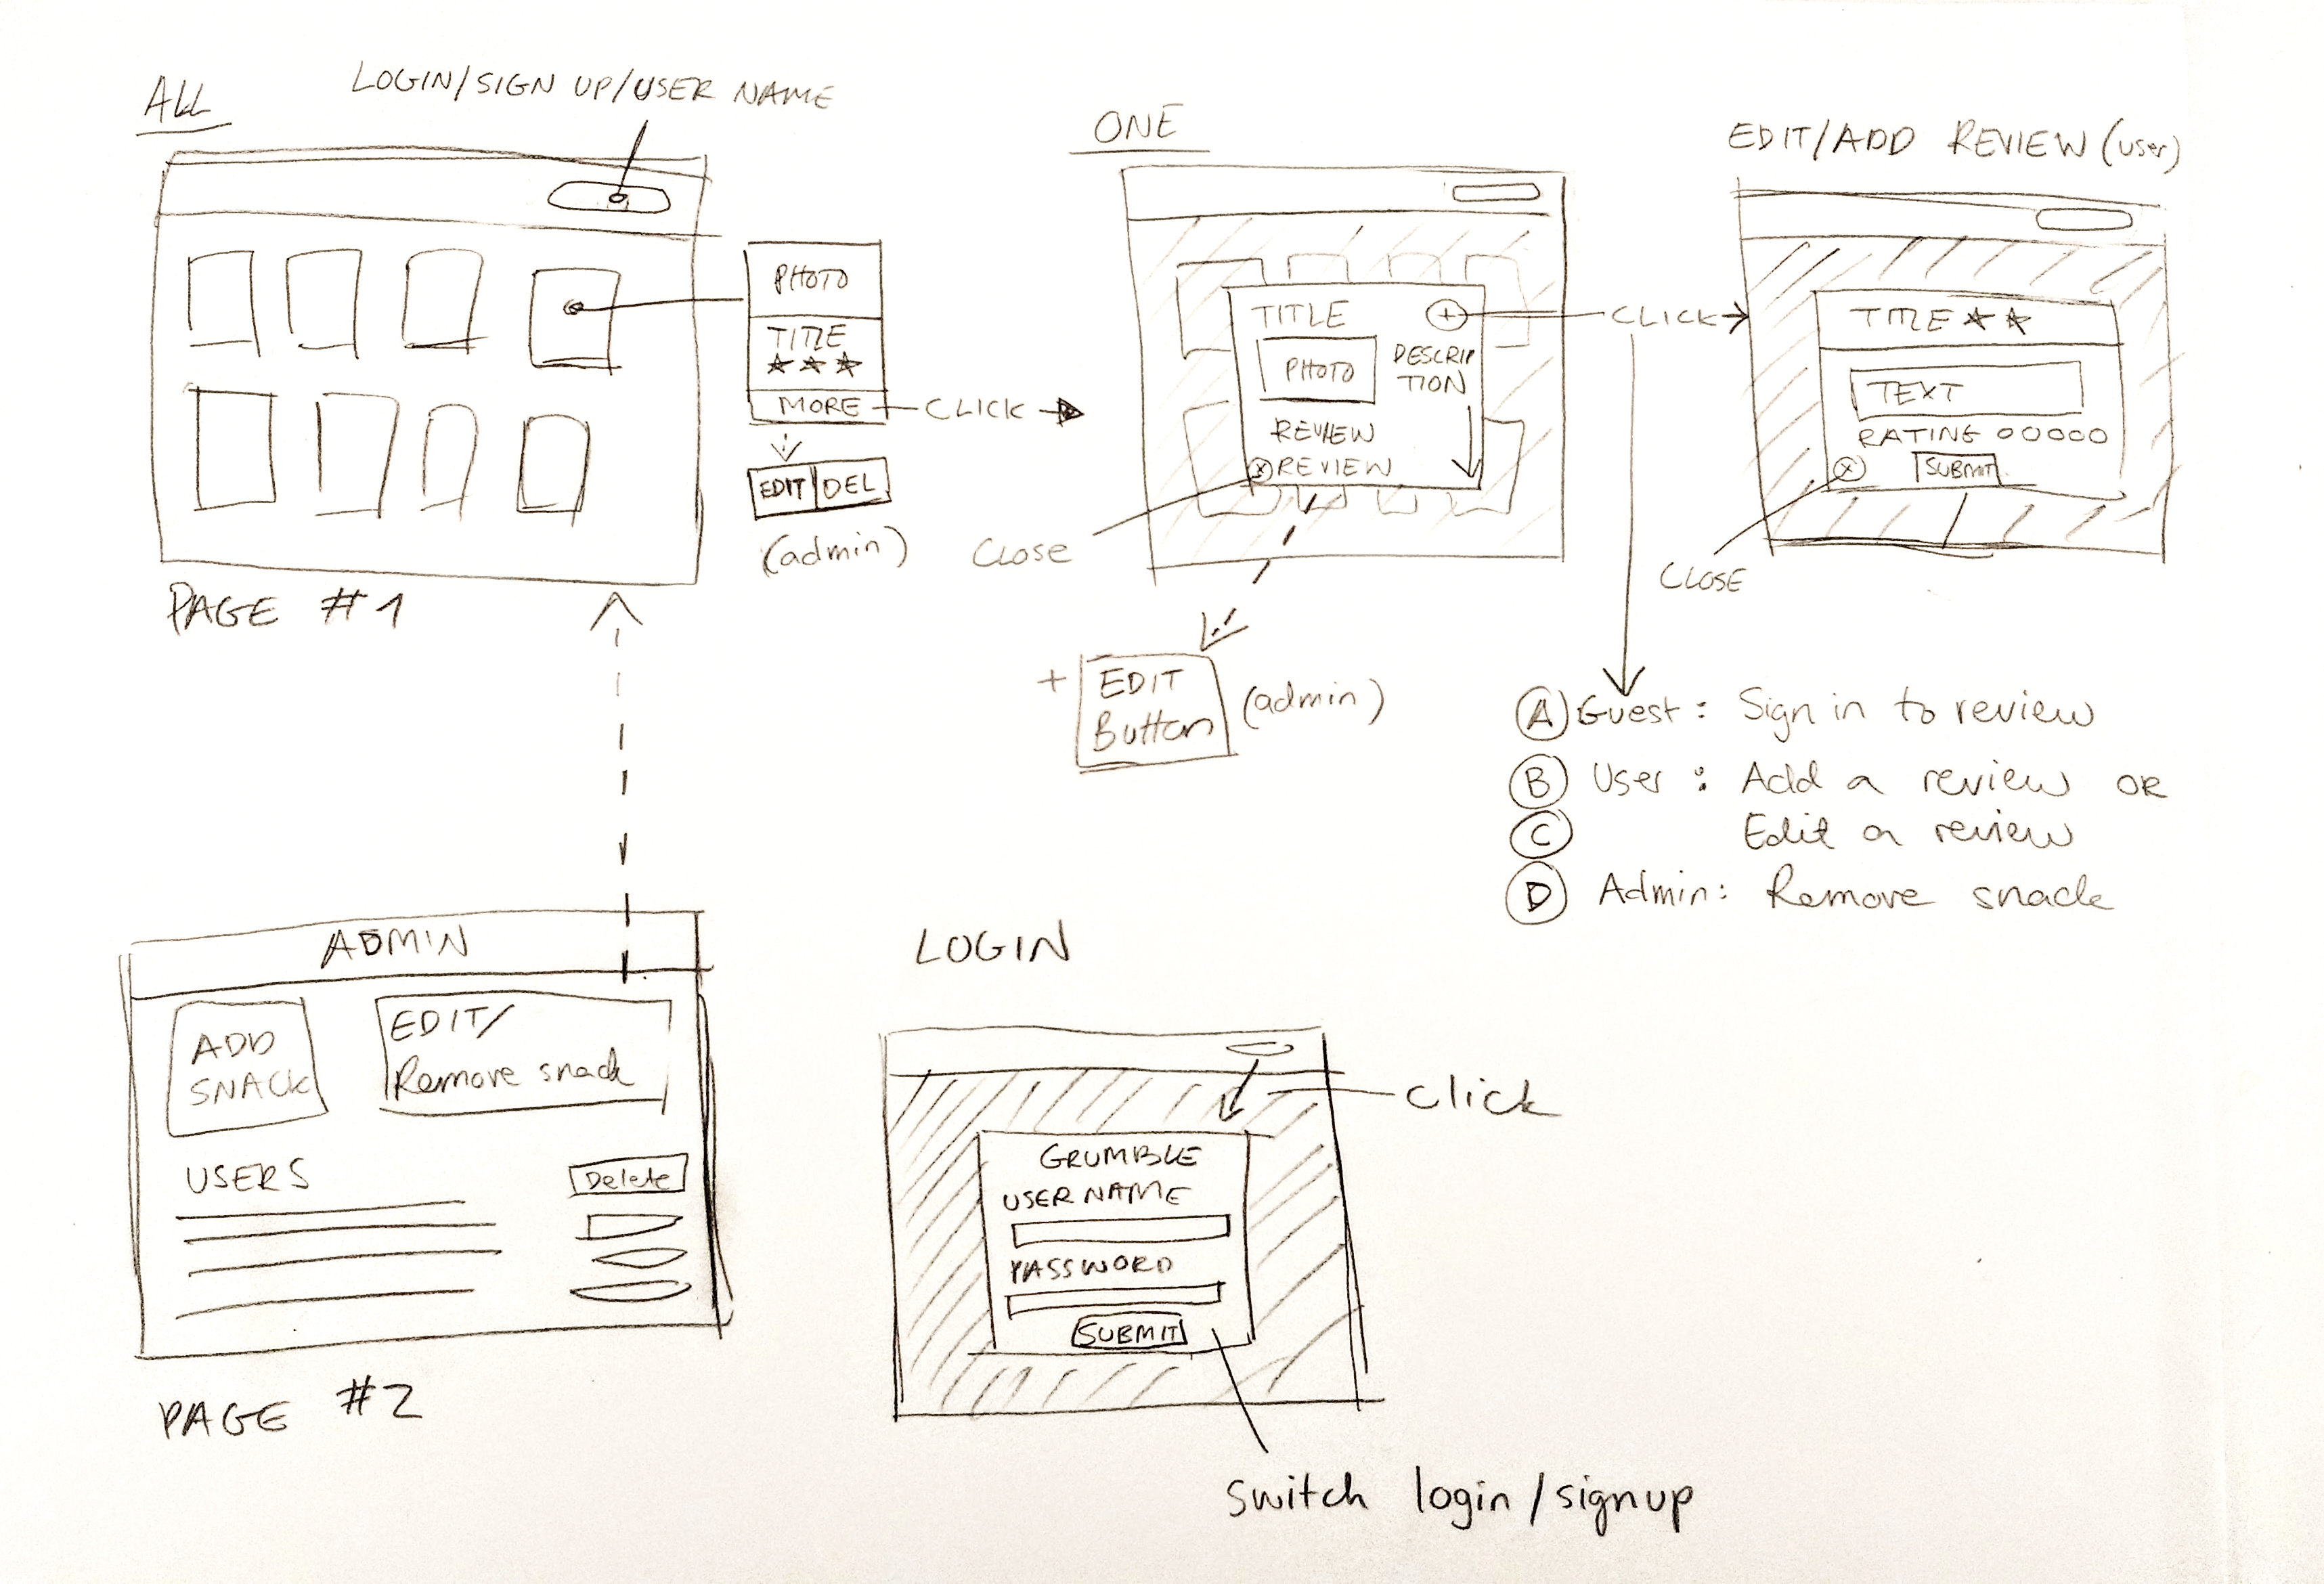 ALL
LOGIN/SIGN UP/USER NAME
PHOTO
TITLE
★ ★ ★
MORE
CLICK
EDIT DEL
(admin)
PAGE #1
ONE
TITLE +
PHOTO
DESCRIP
TION
REVIEW
X REVIEW
Close
CLICK
+ EDIT
Button
(admin)
EDIT/ADD REVIEW (user)
TITLE ★ ★
TEXT
RATING OOOOO
X SUBMIT
CLOSE
A Guest: Sign in to review
B User: Add a review OR
C Edit a review
D Admin: Remove snack
ADMIN
ADD
SNACK
EDIT/
Remove snack
USERS
Delete
PAGE #2
LOGIN
Click
GRUMBLE
USER NAME
PASSWORD
SUBMIT
switch login/signup